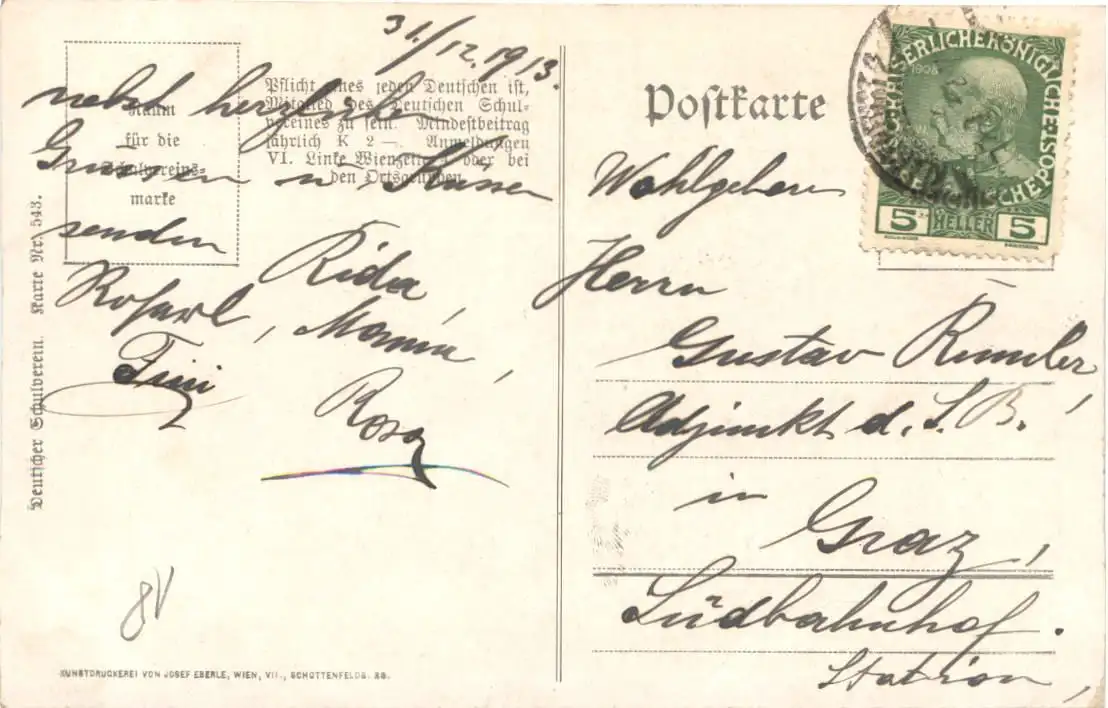 31./12. 1913.
nebst herzlichen
Grüssen u. Küssen
senden
Rida,
Rosarl, Mamia,
Fini
Rosa
Raum
für die
Schulvereins-
marke
Pflicht eines jeden Deutschen ist,
Mitglied des Deutschen Schul-
vereines zu sein. Mindestbeitrag
jährlich K 2—. Anmeldungen
VI. Linke Wienzeile oder bei
den Ortsgruppen.
Deutscher Schulverein. Karte Nr. 543.
8V
KUNSTDRUCKEREI VON JOSEF EBERLE, WIEN, VII., SCHOTTENFELDG. 38.
Postkarte
KAISERLICHE KÖNIGLICHE ÖSTERREICHISCHE POST
1908
5 HELLER 5
Wohlgeboren
Herrn
Gustav
Adjunkt d. S. B.
in
Graz,
Südbahnhof.
Station,